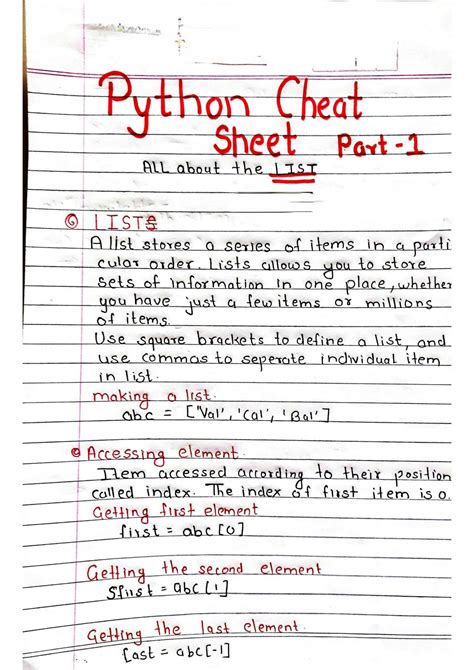 Python Cheat
Sheet Part-1
ALL about the LIST
LISTS
A list stores a series of items in a parti
cular order. Lists allows you to store
sets of information in one place, whether
you have just a few items or millions
of items.
Use square brackets to define a list, and
use commas to seperate individual item
in list.
making a list.
abc = ['Val', 'Cal', 'Bal']
Accessing element.
Item accessed according to their position
called index. The index of first item is 0.
Getting first element
first = abc[0]
Getting the second element
Sfirst = abc[1]
Getting the last element.
last = abc[-1]